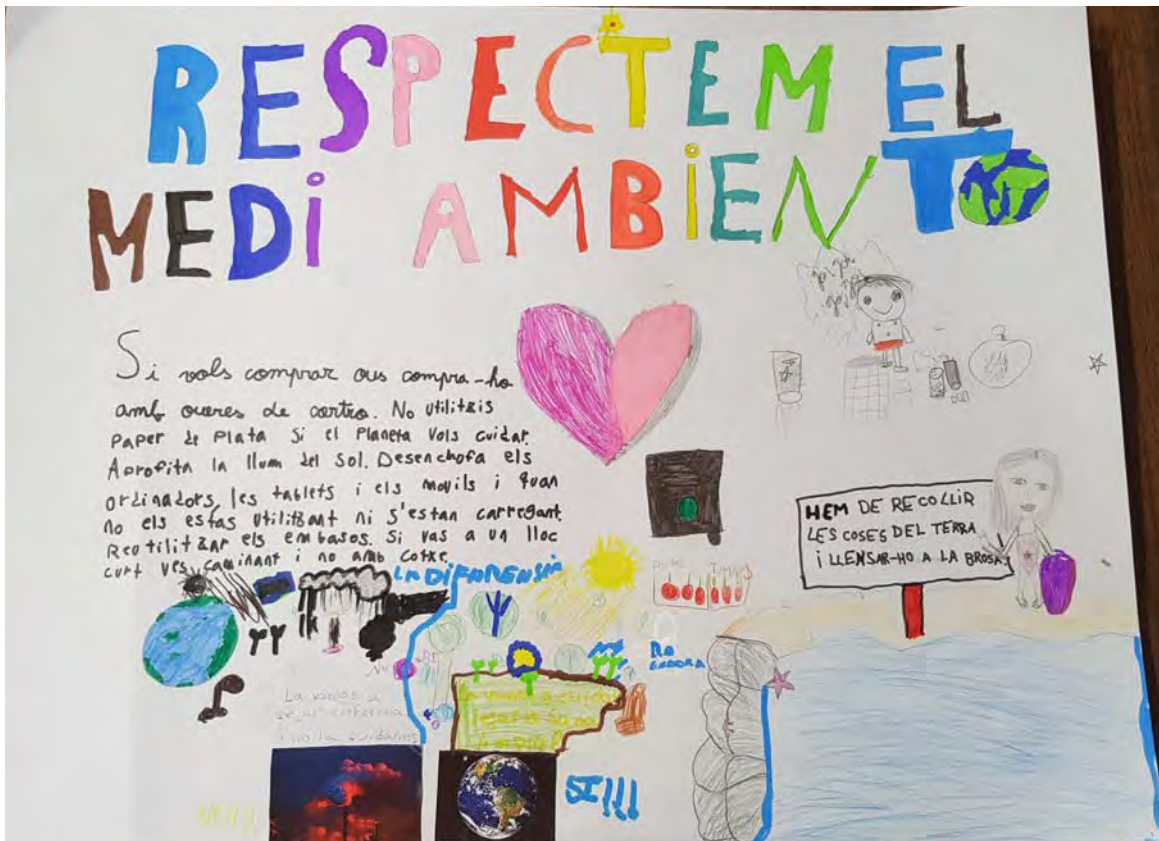 RESPECTEM EL
MEDI AMBIENT
Si vols comprar ous compra-ho
amb oueres de cartro. No utilitzis
paper de plata si el planeta vols cuidar.
Aprofita la llum del sol. Desenchofa els
ordinadors, les tablets i els movils i quan
no els estas utilitzant ni s'estan carregant.
Reutilitzar els embasos. Si vas a un lloc
curt ves caminant i no amb cotxe.
HEM DE RECOLLIR
LES COSES DEL TERRA
I LLENSAR-HO A LA BROSA.
LA DIFARENSIA
La vamos a
si no la cuidamos
SI!!!